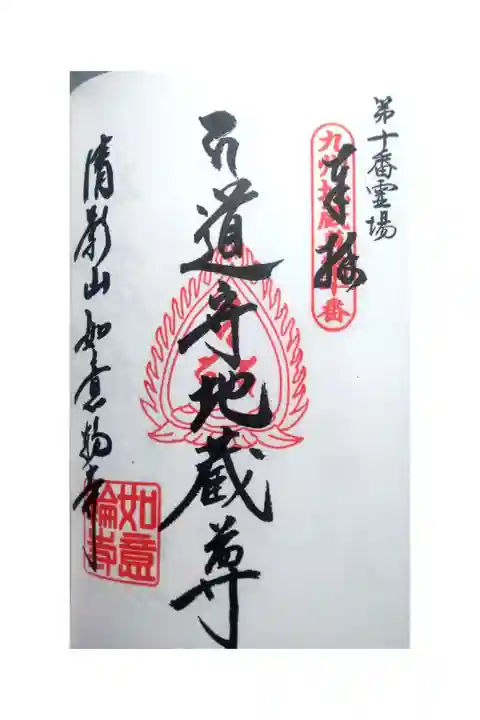 第十番霊場
九州地蔵尊十番
奉拝
引導地蔵尊
清影山如意輪寺
如意
輪寺